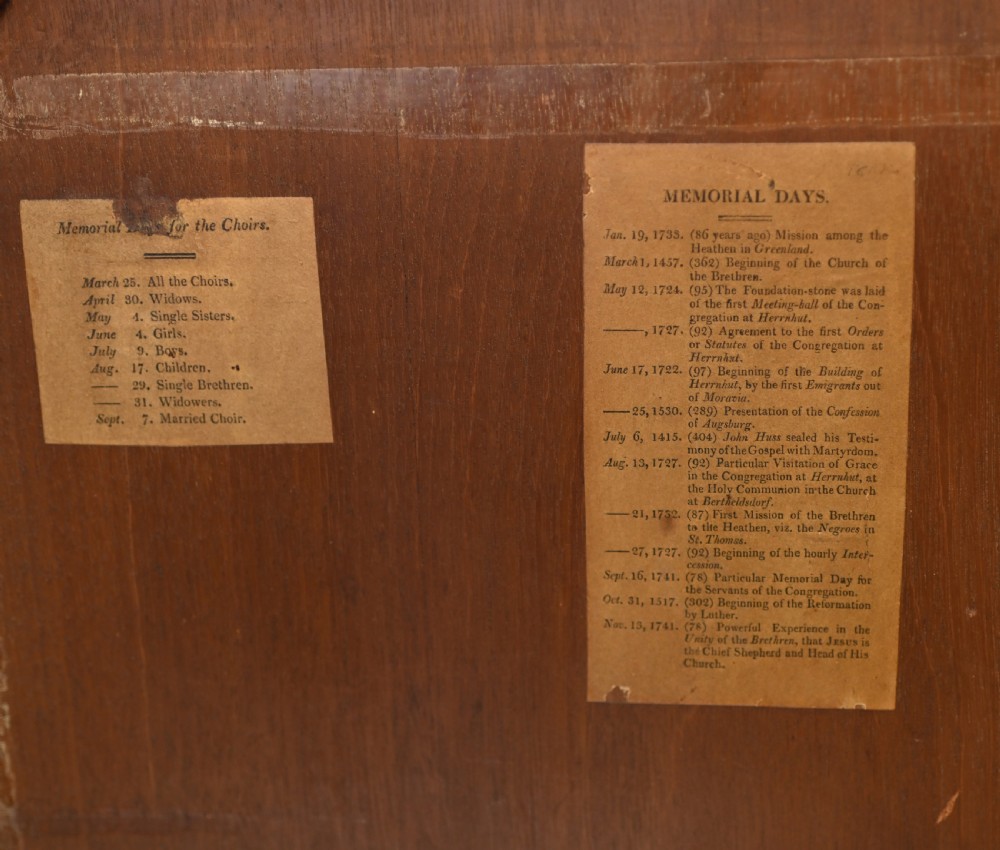 Memorial Days for the Choirs.
March 25. All the Choirs.
April 30. Widows.
May 4. Single Sisters.
June 4. Girls.
July 9. Boys.
Aug. 17. Children.
—— 29. Single Brethren.
—— 31. Widowers.
Sept. 7. Married Choir.
MEMORIAL DAYS.
Jan. 19, 1733. (86 years ago) Mission among the
Heathen in Greenland.
March 1, 1457. (362) Beginning of the Church of
the Brethren.
May 12, 1724. (95) The Foundation-stone was laid
of the first Meeting-hall of the Con-
gregation at Herrnhut.
———, 1727. (92) Agreement to the first Orders
or Statutes of the Congregation at
Herrnhut.
June 17, 1722. (97) Beginning of the Building of
Herrnhut, by the first Emigrants out
of Moravia.
—— 25, 1530. (289) Presentation of the Confession
of Augsburg.
July 6, 1415. (404) John Huss sealed his Testi-
mony of the Gospel with Martyrdom.
Aug. 13, 1727. (92) Particular Visitation of Grace
in the Congregation at Herrnhut, at
the Holy Communion in the Church
at Bertheldsdorf.
—— 21, 1732. (87) First Mission of the Brethren
to the Heathen, viz. the Negroes in
St. Thomas.
—— 27, 1727. (92) Beginning of the hourly Inter-
cession.
Sept. 16, 1741. (78) Particular Memorial Day for
the Servants of the Congregation.
Oct. 31, 1517. (302) Beginning of the Reformation
by Luther.
Nov. 13, 1741. (78) Powerful Experience in the
Unity of the Brethren, that JESUS is
the Chief Shepherd and Head of His
Church.